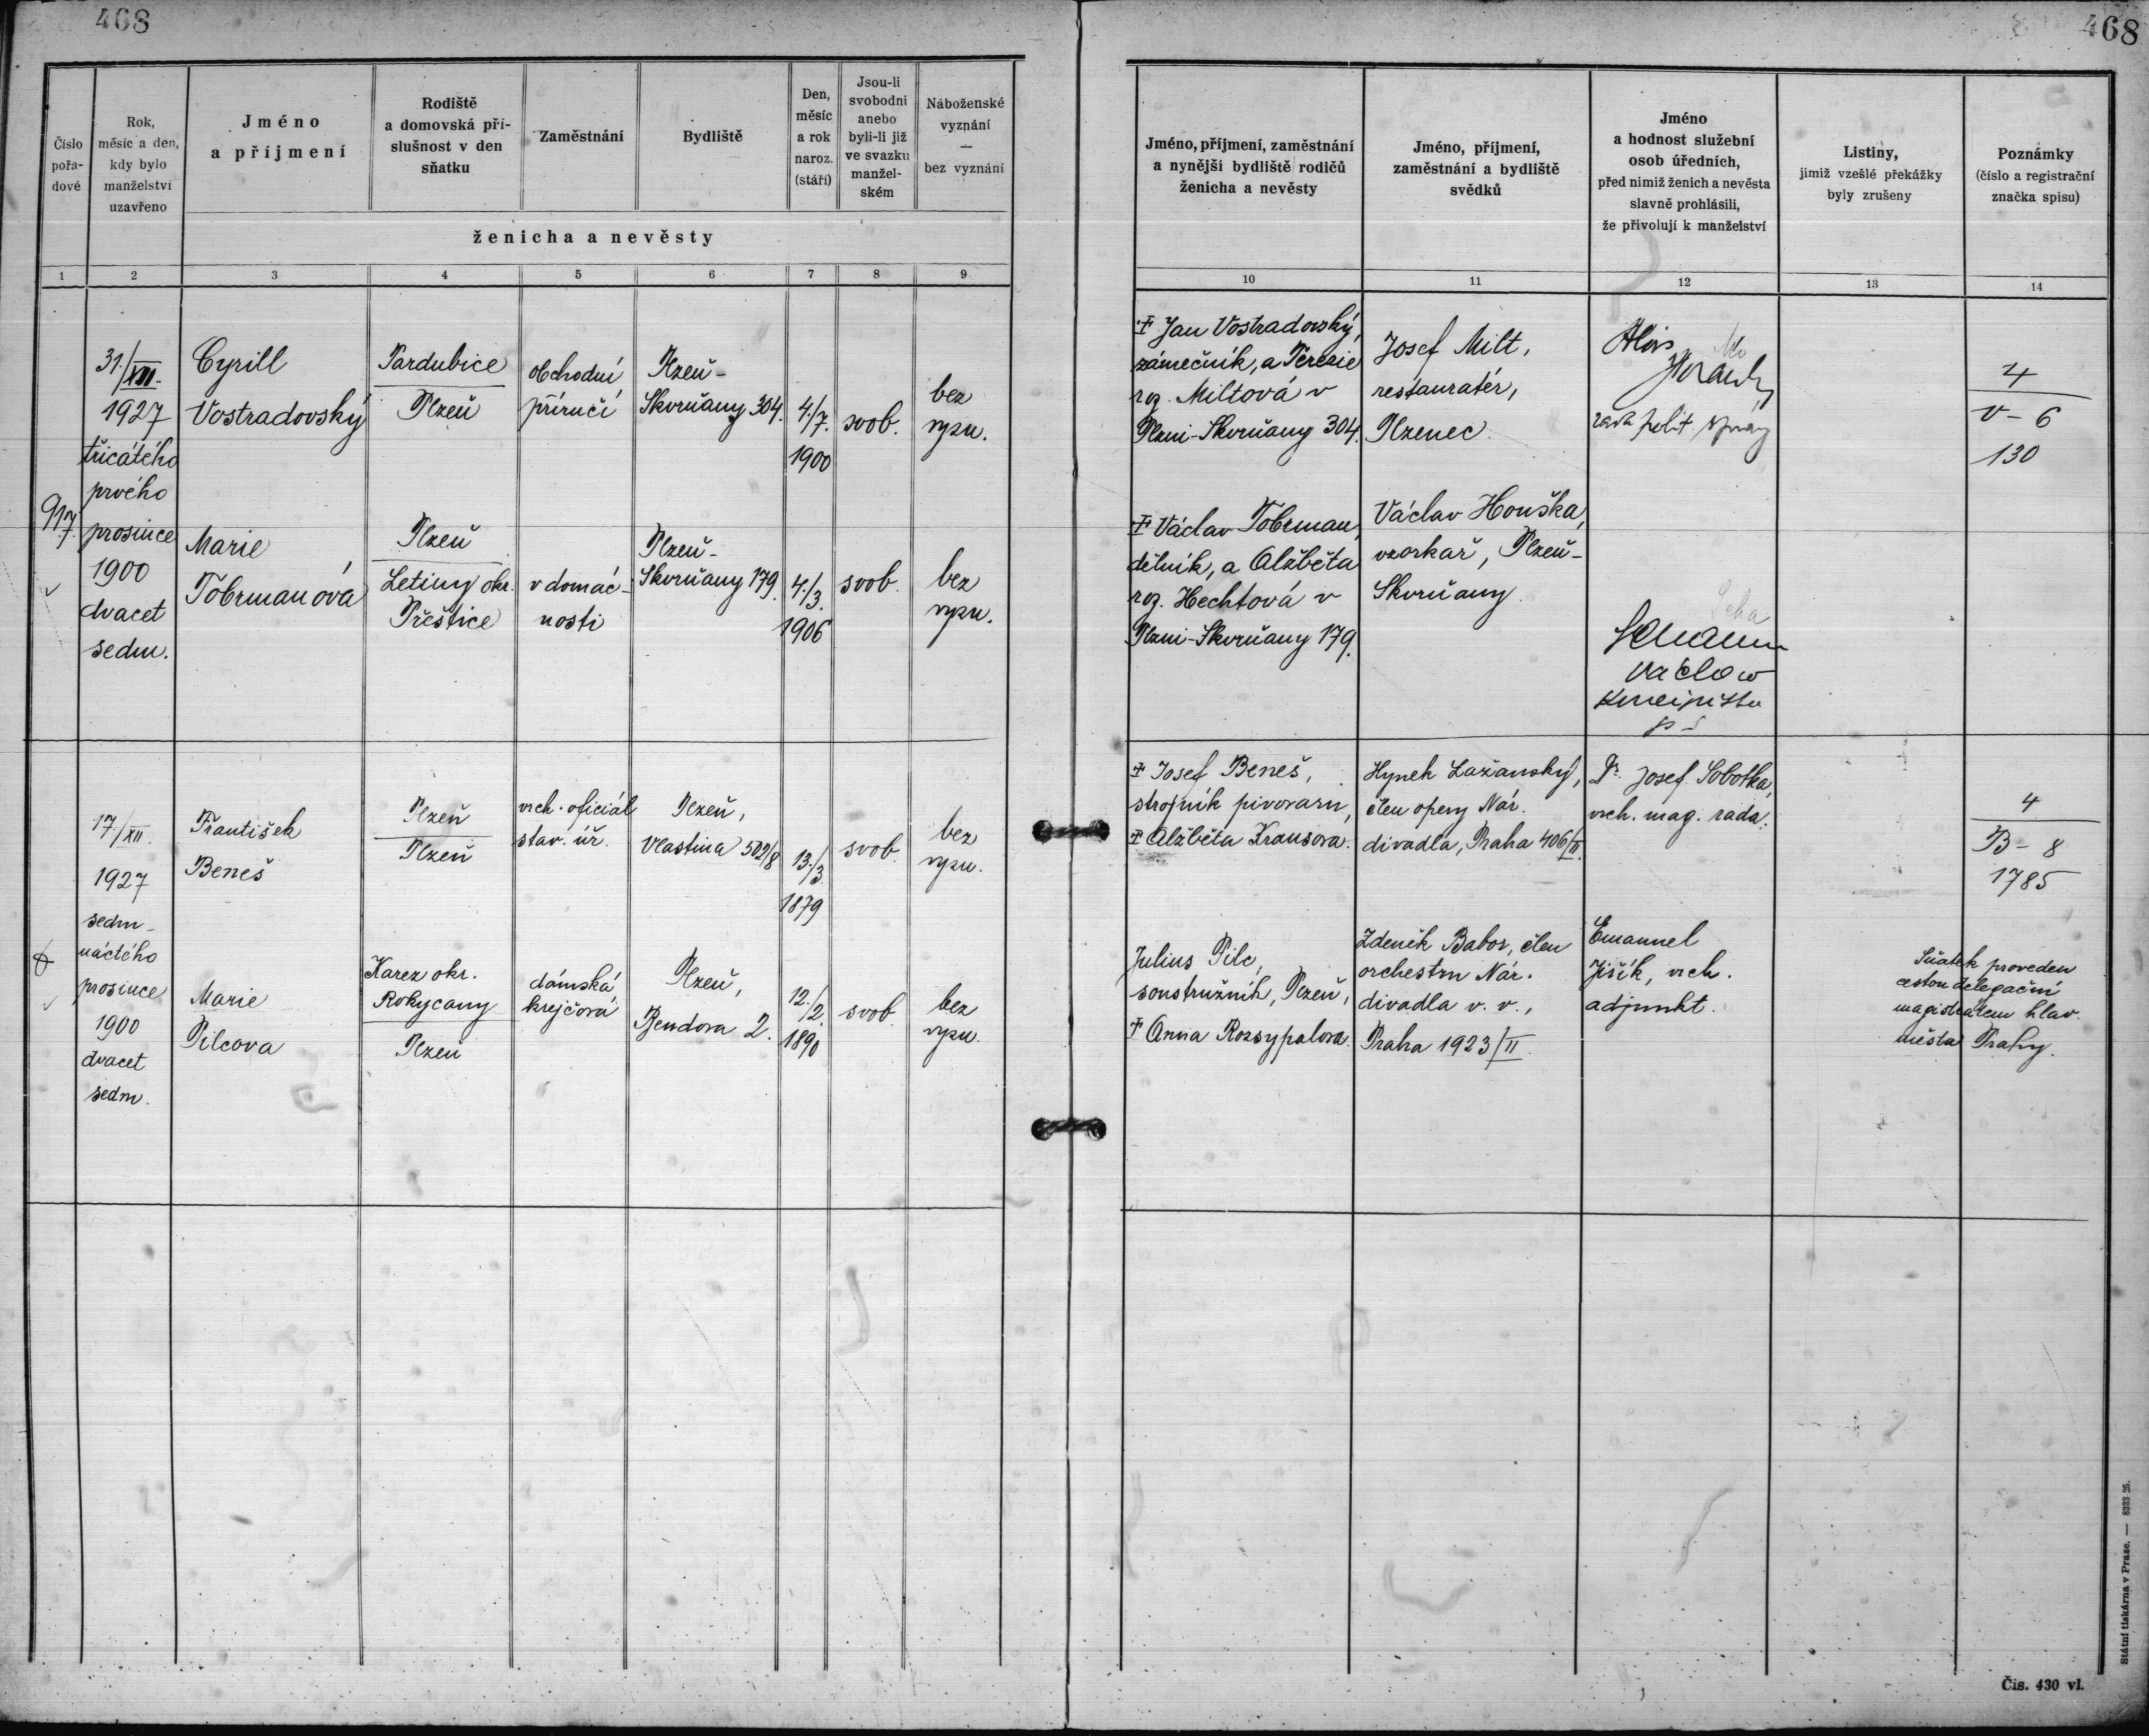 468
468
Číslo pořadové
Rok, měsíc a den, kdy bylo manželství uzavřeno
Jméno a příjmení
Rodiště a domovská příslušnost v den sňatku
Zaměstnání
Bydliště
Den, měsíc a rok naroz. (stáří)
Jsou-li svobodni anebo byli-li již ve svazku manželském
Náboženské vyznání — bez vyznání
ženicha a nevěsty
Jméno, příjmení, zaměstnání a nynější bydliště rodičů ženicha a nevěsty
Jméno, příjmení, zaměstnání a bydliště svědků
Jméno a hodnost služební osob úředních, před nimiž ženich a nevěsta slavně prohlásili, že přivolují k manželství
Listiny, jimiž vzešlé překážky byly zrušeny
Poznámky (číslo a registrační značka spisu)
1 2 3 4 5 6 7 8 9 10 11 12 13 14
917
31./XII.
1927
třicátého
prvého
prosince
1900
dvacet
sedm.
Cyrill
Vostradovský
Pardubice
Plzeň
obchodní
příručí
Plzeň-
Skvrňany 304.
4./7.
1900
svob.
bez
vyzn.
‡ Jan Vostradovský,
zámečník, a Terezie
roz. Miltová v
Plzni-Skvrňany 304.
Josef Milt,
restauratér,
Plzenec.
Alois
rada polit. správy
4
V - 6
130
Marie
Tobrmanová
Plzeň
Letiny okr.
Přeštice
v domác-
nosti
Plzeň-
Skvrňany 179.
4./3.
1906
svob.
bez
vyzn.
‡ Václav Tobrman,
dělník, a Alžběta
roz. Hechtová v
Plzni-Skvrňany 179.
Václav Houška,
vzorkař, Plzeň-
Skvrňany.
17./XII.
1927
sedm-
náctého
prosince
1900
dvacet
sedm.
František
Beneš
Plzeň
Plzeň
vrch. oficiál
stav. úř.
Plzeň,
Vlastina 502/8
13./3.
1879
svob.
bez
vyzn.
‡ Josef Beneš,
strojník pivovaru,
‡ Alžběta Krausova.
Hynek Lažanský,
člen opery Nár.
divadla, Praha 406/II.
Dr. Josef Sobotka,
vrch. mag. rada.
4
B - 8
1785
Marie
Pilcova
Karez okr.
Rokycany
Plzeň
dámská
krejčová
Plzeň,
Bendova 2.
12./2.
1890
svob.
bez
vyzn.
Julius Pilc,
soustružník, Plzeň,
‡ Anna Rozsypalova.
Zdeněk Babor, člen
orchestru Nár.
divadla v. v.,
Praha 1923/II.
Emanuel
Jišík, vrch.
adjunkt.
Sňatek proveden
cestou delegační
magistrátem hlav.
města Prahy.
Státní tiskárna v Praze. — 8333 26.
Čís. 430 vl.